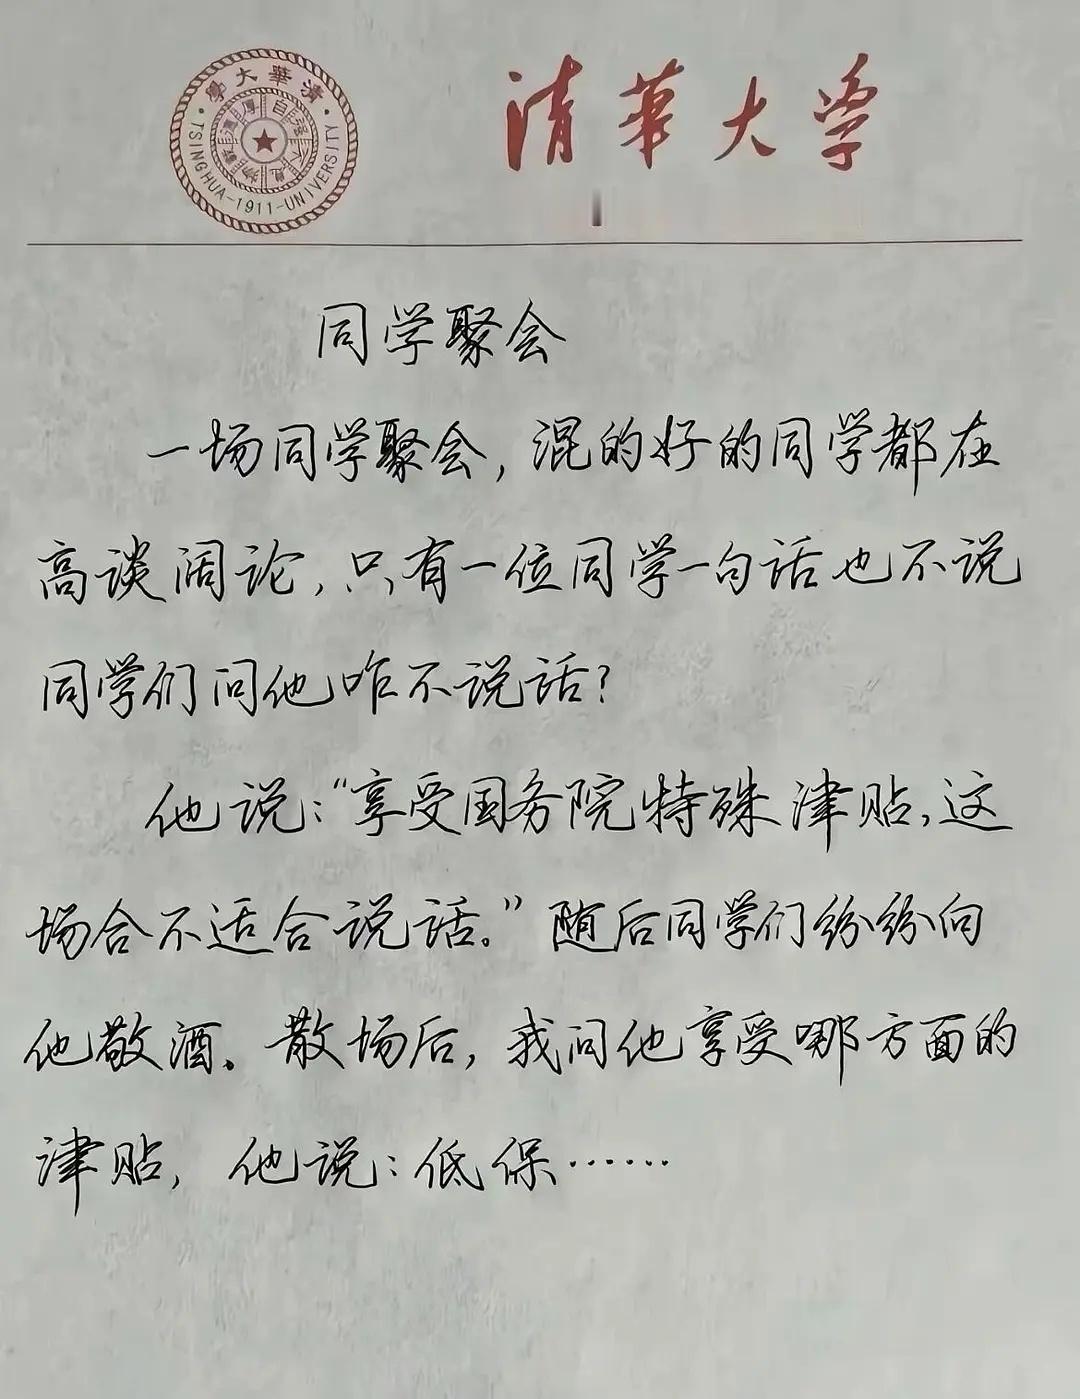 清華大学
學大華清
自强不息
厚德載物
TSINGHUA-1911-UNIVERSITY
同学聚会
一场同学聚会,混的好的同学都在
高谈阔论,只有一位同学一句话也不说
同学们问他咋不说话?
他说:“享受国务院特殊津贴,这
场合不适合说话。”随后同学们纷纷向
他敬酒。散场后,我问他享受哪方面的
津贴,他说:低保……